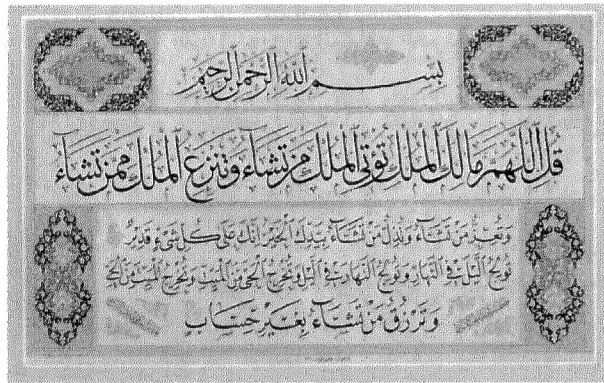 بسم الله الرحمن الرحيم
قل اللهم مالك الملك تؤتي الملك من تشاء وتنزع الملك ممن تشاء
وتعز من تشاء وتذل من تشاء بيدك الخير انك على كل شيء قدير
تولج الليل في النهار وتولج النهار في الليل وتخرج الحي من الميت وتخرج الميت من الحي
وترزق من تشاء بغير حساب